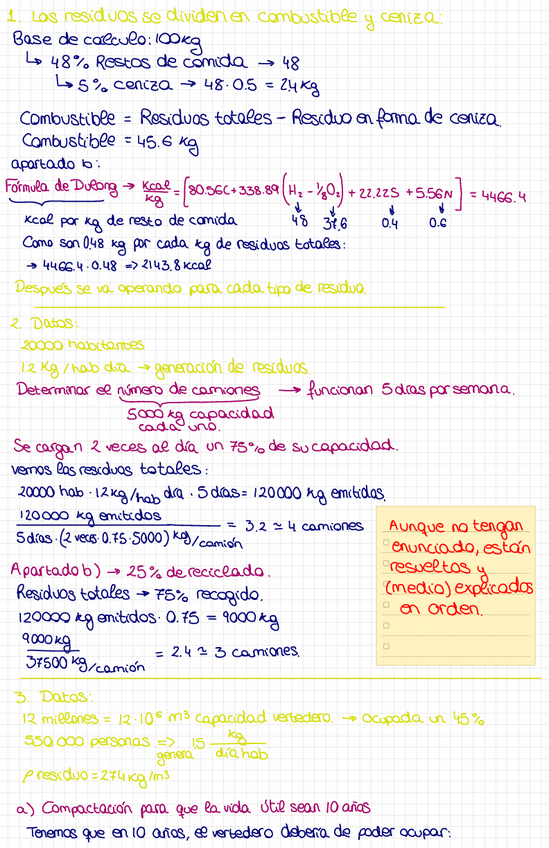 1. Los residuos se dividen en combustible y ceniza:
Base de cálculo: 100kg
↳ 48% Restos de comida → 48
↳ 5% ceniza → 48·0.5 = 24kg
Combustible = Residuos totales - Residuo en forma de ceniza.
Combustible = 45.6 kg
apartado b:
Fórmula de Dulong → Kcal/kg = [80.56C + 338.89 (H₂ - 1/8 O₂) + 22.22S + 5.56N] = 4466.4
Kcal por kg de resto de comida 48 37.6 0.4 0.6
Como son 0,48 kg por cada kg de residuos totales:
→ 4466.4·0.48 => 2143.8 kcal
Después se va operando para cada tipo de residuo.
2. Datos:
20000 habitantes
1.2 Kg/hab día → generación de residuos.
Determinar el número de camiones → funcionan 5 días por semana.
5000 kg capacidad
cada uno.
Se cargan 2 veces al día un 75% de su capacidad.
vemos los residuos totales:
20000 hab · 1.2kg/hab día · 5 días = 120000 kg emitidos.
120000 kg emitidos / 5 días·(2 veces·0.75·5000) kg/camión = 3.2 ≃ 4 camiones
Apartado b) → 25% de reciclado.
Residuos totales → 75% recogido.
120000 kg emitidos · 0.75 = 9000kg
9000kg / 37500 kg/camión = 2.4 ≃ 3 camiones.
Aunque no tengan
enunciado, están
resueltos y
(medio) explicados
en orden.
3. Datos:
12 millones = 12·10⁶ m³ capacidad vertedero. → Ocupada un 45%
550 000 personas => genera 15 kg/día hab
ρ residuo = 274kg/m³
a) Compactación para que la vida útil sean 10 años
Tenemos que en 10 años, el vertedero debería de poder ocupar: